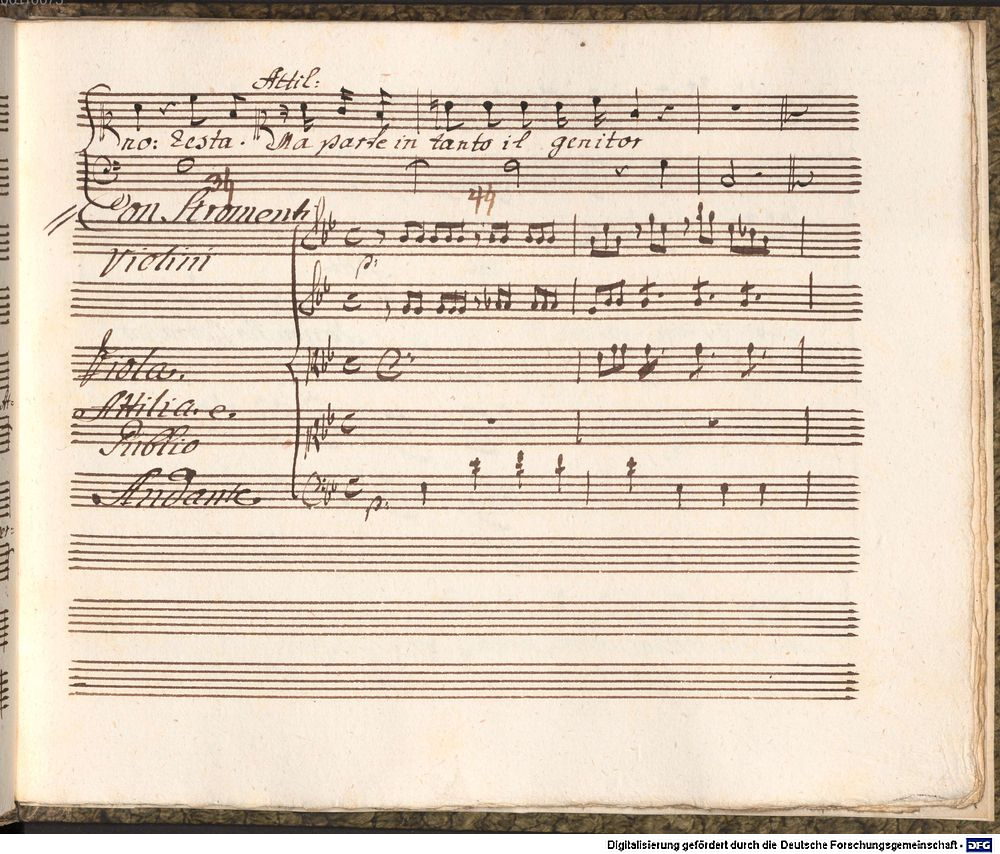 Attil:
no: resta. Ma parte in tanto il genitor
Con Stromenti
Violini
p:
Viola.
Attilia. e.
Publio
Andante
p:
Digitalisierung gefördert durch die Deutsche Forschungsgemeinschaft - DFG